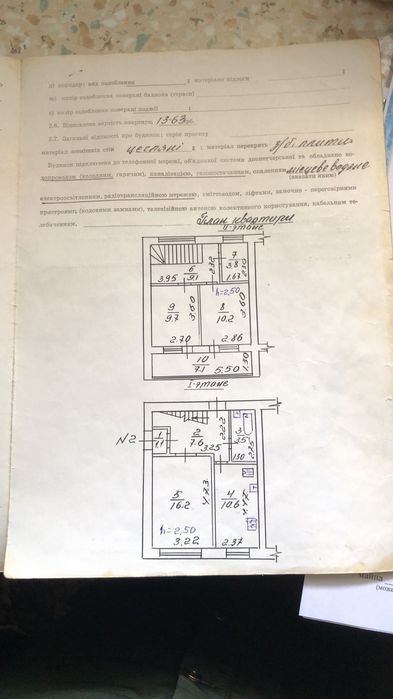 п) коридор: вид оздоблення ; матеріали підлоги ;
м) колір оздоблення поверхні балкона (тераси)
с) колір оздоблення поверхні лоджії ;
2.6. Відновлена вартість квартири 1363
2.7. Загальні відомості про будинок: серія проекту
матеріал зовнішніх стін цегляні ; матеріал перекрить з/б плити
Будинок підключено до телефонної мережі, об'єднаної системи диспетчерської та обладнано во-
допроводом (холодним, гарячим), каналізацією, газопостачанням, опаленням місцеве водяне
(вказати яким)
електроосвітленням, радіотрансляційною мережею, сміттєводом, ліфтами, замочно - переговорними
пристроями, (кодовими замками), телевізійною антеною колективного користування, кабельним те-
лебаченням,
План квартири
II-этаже
7
3.8
1.67
2.30
2.32
6
9.1
3.95
h=2,50
9
9.7
3.60
8
10.2
3.60
2.70
2.86
10
7.1
5.50
1.30
I-этаже
N2
1
1.1
2
7.6
3.25
2.22
3
3.5
1.30
2.25
5
16.2
4.73
4
10.6
h=2,50
3.22
2.37
майна
(може